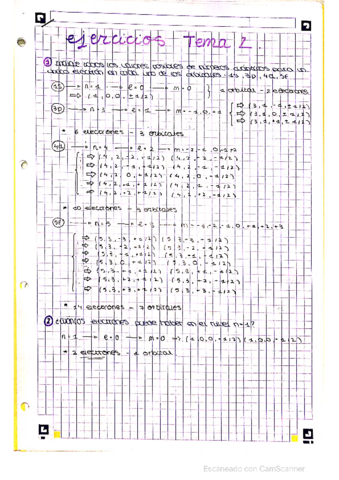 ejercicios Tema 2.
① Indique todos los valores posibles de números cuánticos para un
único electrón en cada uno de los orbitales: 1s, 3p, 4d, 5f
1s → n=1 → l=0 → m=0 } 1 orbital - 2 electrones
⇒ (1,0,0,±1/2)
3p → n=3 → l=1 → m=-1,0,+1 ⇒ (3,1,-1,±1/2)
⇒ (3,1,0,±1/2)
⇒ (3,1,+1,±1/2)
* 6 electrones - 3 orbitales
4d → n=4 → l=2 → m=-2,-1,0,1,2
⇒ (4,2,-2,+1/2) (4,2,-2,-1/2)
⇒ (4,2,-1,+1/2) (4,2,-1,-1/2)
⇒ (4,2,0,+1/2) (4,2,0,-1/2)
⇒ (4,2,+1,+1/2) (4,2,+1,-1/2)
⇒ (4,2,+2,+1/2) (4,2,+2,-1/2)
* 10 electrones - 5 orbitales
5f → n=5 → l=3 → m=-3,-2,-1,0,+1,+2,+3
⇒ (5,3,-3,+1/2) (5,3,-3,-1/2)
⇒ (5,3,-2,+1/2) (5,3,-2,-1/2)
⇒ (5,3,-1,+1/2) (5,3,-1,-1/2)
⇒ (5,3,0,+1/2) (5,3,0,-1/2)
⇒ (5,3,+1,+1/2) (5,3,+1,-1/2)
⇒ (5,3,+2,+1/2) (5,3,+2,-1/2)
⇒ (5,3,+3,+1/2) (5,3,+3,-1/2)
* 14 electrones - 7 orbitales
② ¿Cuántos electrones puede haber en el nivel n=1?
n=1 → l=0 → m=0 → (1,0,0,+1/2) (1,0,0,-1/2)
* 2 electrones - 1 orbital
Escaneado con CamScanner